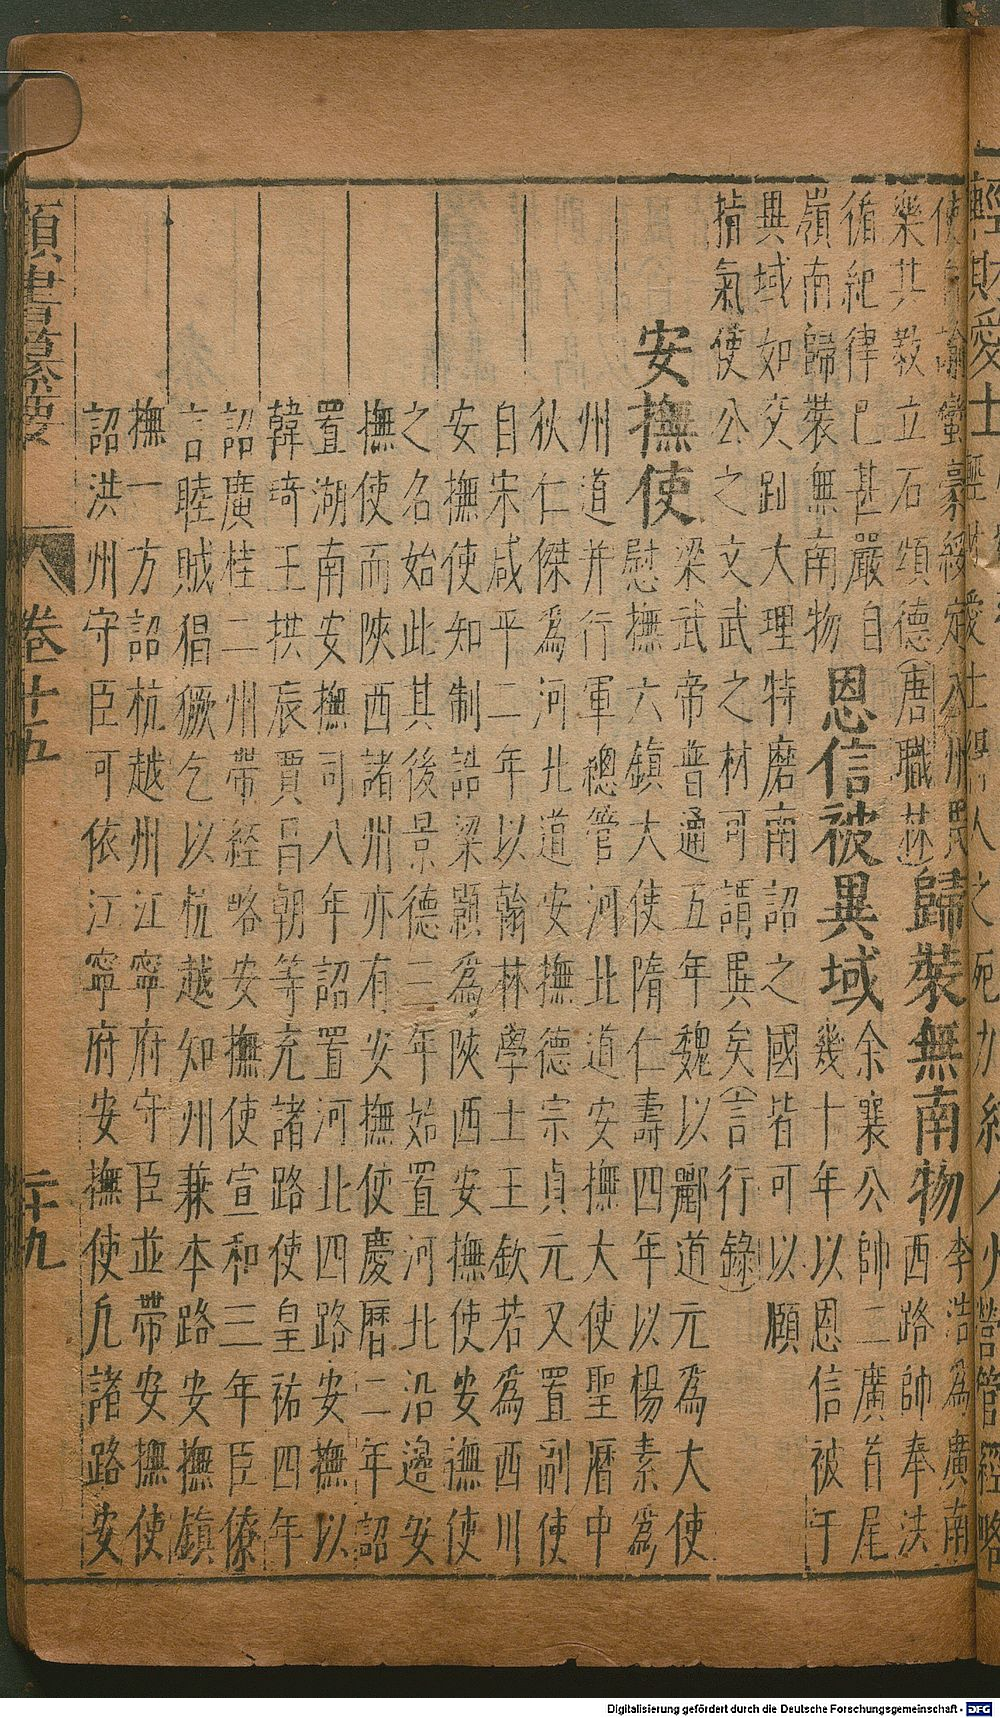 輕財愛士
諭蠻豪綏定八州民
樂其教立石頌德(唐職林)
歸裝無南物
李浩為廣南
西路帥奉法
循紀律已甚嚴自
嶺南歸裝無南物
恩信被異域
余襄公帥二廣首尾
幾十年以恩信被于
異域如交趾大理特磨南詔之國皆可以頤
指氣使公之文武之材可謂異矣(言行錄)
安撫使
梁武帝普通五年魏以酈道元為大使
慰撫六鎮大使隋仁壽四年以楊素為
州道并行軍總管河北道安撫大使聖曆中
狄仁傑為河北道安撫德宗貞元又置副使
自宋咸平二年以翰林學士王欽若為西川
安撫使知制誥梁顥為陝西安撫使安撫使
之名始此其後景德三年始置河北沿邊安
撫使而陝西諸州亦有安撫使慶曆二年詔
置湖南安撫司八年詔置河北四路安撫以
韓琦王拱辰賈昌朝等充諸路使皇祐四年
詔廣桂二州帶經略安撫使宣和三年臣僚
言睦賊猖獗乞以杭越知州兼本路安撫鎮
撫一方詔杭越州江寧府守臣並帶安撫使
詔洪州守臣可依江寧府安撫使凡諸路安
類書纂要 卷十五 二十九
Digitalisierung gefördert durch die Deutsche Forschungsgemeinschaft - DFG